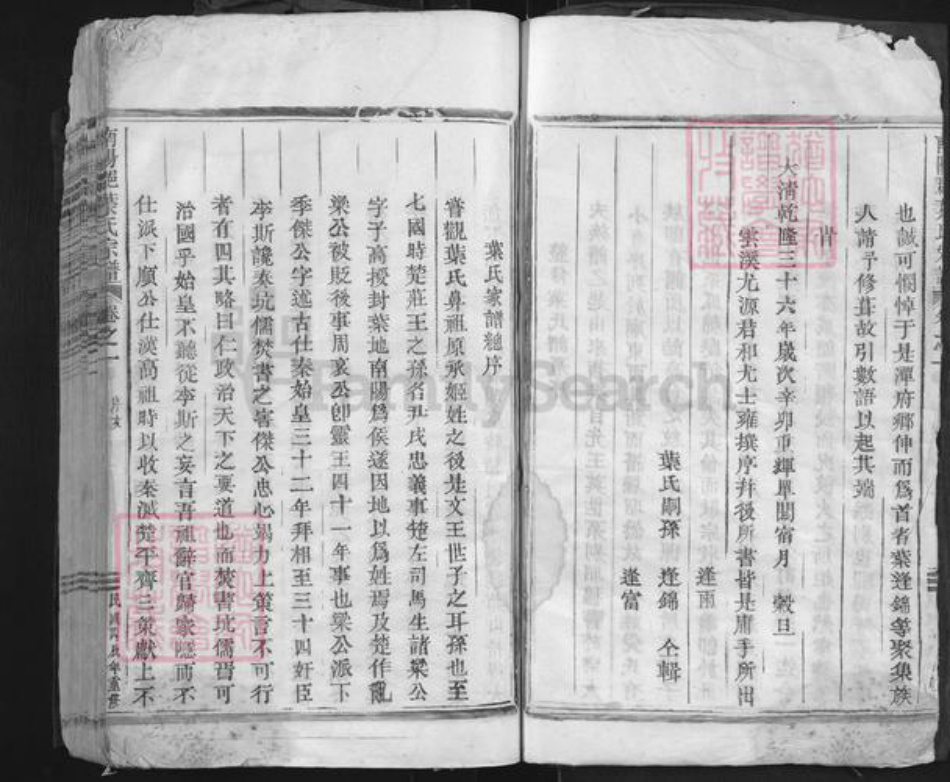 也誠可憫悼于是潭府鄉伸而爲首者葉逢錦等聚集族
人請予修葺故引數語以起其端
旹
大清乾隆三十六年歲次辛卯重輝單閼宿月 穀旦
雲溪尤源君和尤士雍撰序并後所書皆是庸手所出
逢雨
葉氏嗣孫 逢錦 仝輯
逢富
葉氏家譜總序
嘗觀葉氏鼻祖原承姬姓之後是文王世子之耳孫也至
七國時楚莊王之孫名尹戌忠義事楚左司馬生諸梁公
字子高授封葉地南陽爲侯遂因地以爲姓焉及楚作亂
梁公被貶後事周哀公卽靈王四十一年事也梁公派下
季傑公字述古仕秦始皇三十二年拜相至三十四奸臣
李斯讒奏坑儒焚書之害傑公忠心竭力上策言不可行
者有四其略曰仁政治天下之要道也而焚書坑儒晋可
治國乎始皇不聽從李斯之妄言吾祖辭官歸家隱而不
仕派下順公仕漢高祖時以收秦滅楚平齊三策獻上不
南陽 葉氏宗譜 卷之一
FamilySearch